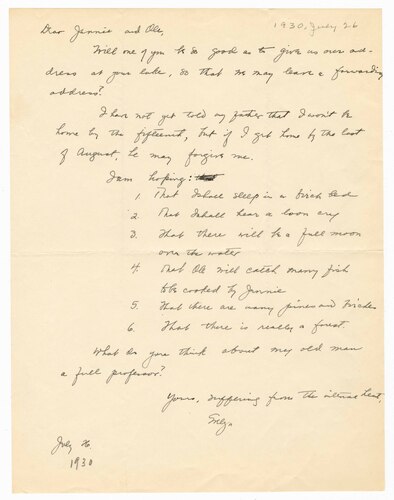 1930, July 26
Dear Jennie and Ole,
Will one of you be so good as to give us our ad-
dress at your lake, so that we may leave a forwarding
address?
I have not yet told my father that I won't be
home by the fifteenth, but if I get home by the last
of August, he may forgive me.
I am hoping:
1. That I shall sleep in a birch bed
2. That I shall hear a loon cry
3. That there will be a full moon
over the water
4. That Ole will catch many fish
to be cooked by Jennie
5. That there are many pines and birches
6. That there is really a forest.
What do you think about my old man
a full professor?
Yours, suffering from the intense heat,
July 26
1930